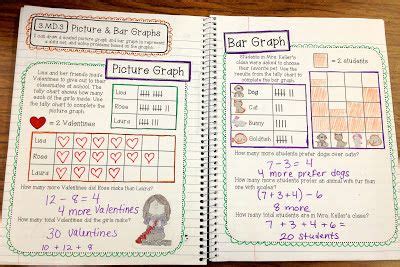 3.MD.3
Picture & Bar Graphs
I can draw a scaled picture graph and bar graph to represent
a data set and solve problems based on the graphs.
Picture Graph
Lisa and her friends made
Valentines to give out to
classmates at school. The
tally chart shows how many
each of the girls made. Use
the tally chart to complete
the picture graph.
Lisa
Rose
Laura
= 2 Valentines
Lisa
Rose
Laura
How many more Valentines did Rose make than
12 - 8 = 4
4 more valentines
How many total Valentines did the girls make?
30 valentines
10 + 12 + 8
Bar Graph
Students in Mrs. Keller's
class were asked to choose
their favorite pet. Use the
results from the tally chart to
complete the bar graph.
= 2 students
Dog
Cat
Bunny
Goldfish
How many more students prefer dogs over cats?
7 - 3 = 4
4 more prefer dogs
How many more students prefer an animal with fur than
one with scales?
(7 + 3 + 4) - 6
8 more
How many total students are in Mrs. Keller's class?
7 + 3 + 4 + 6 =
20 students